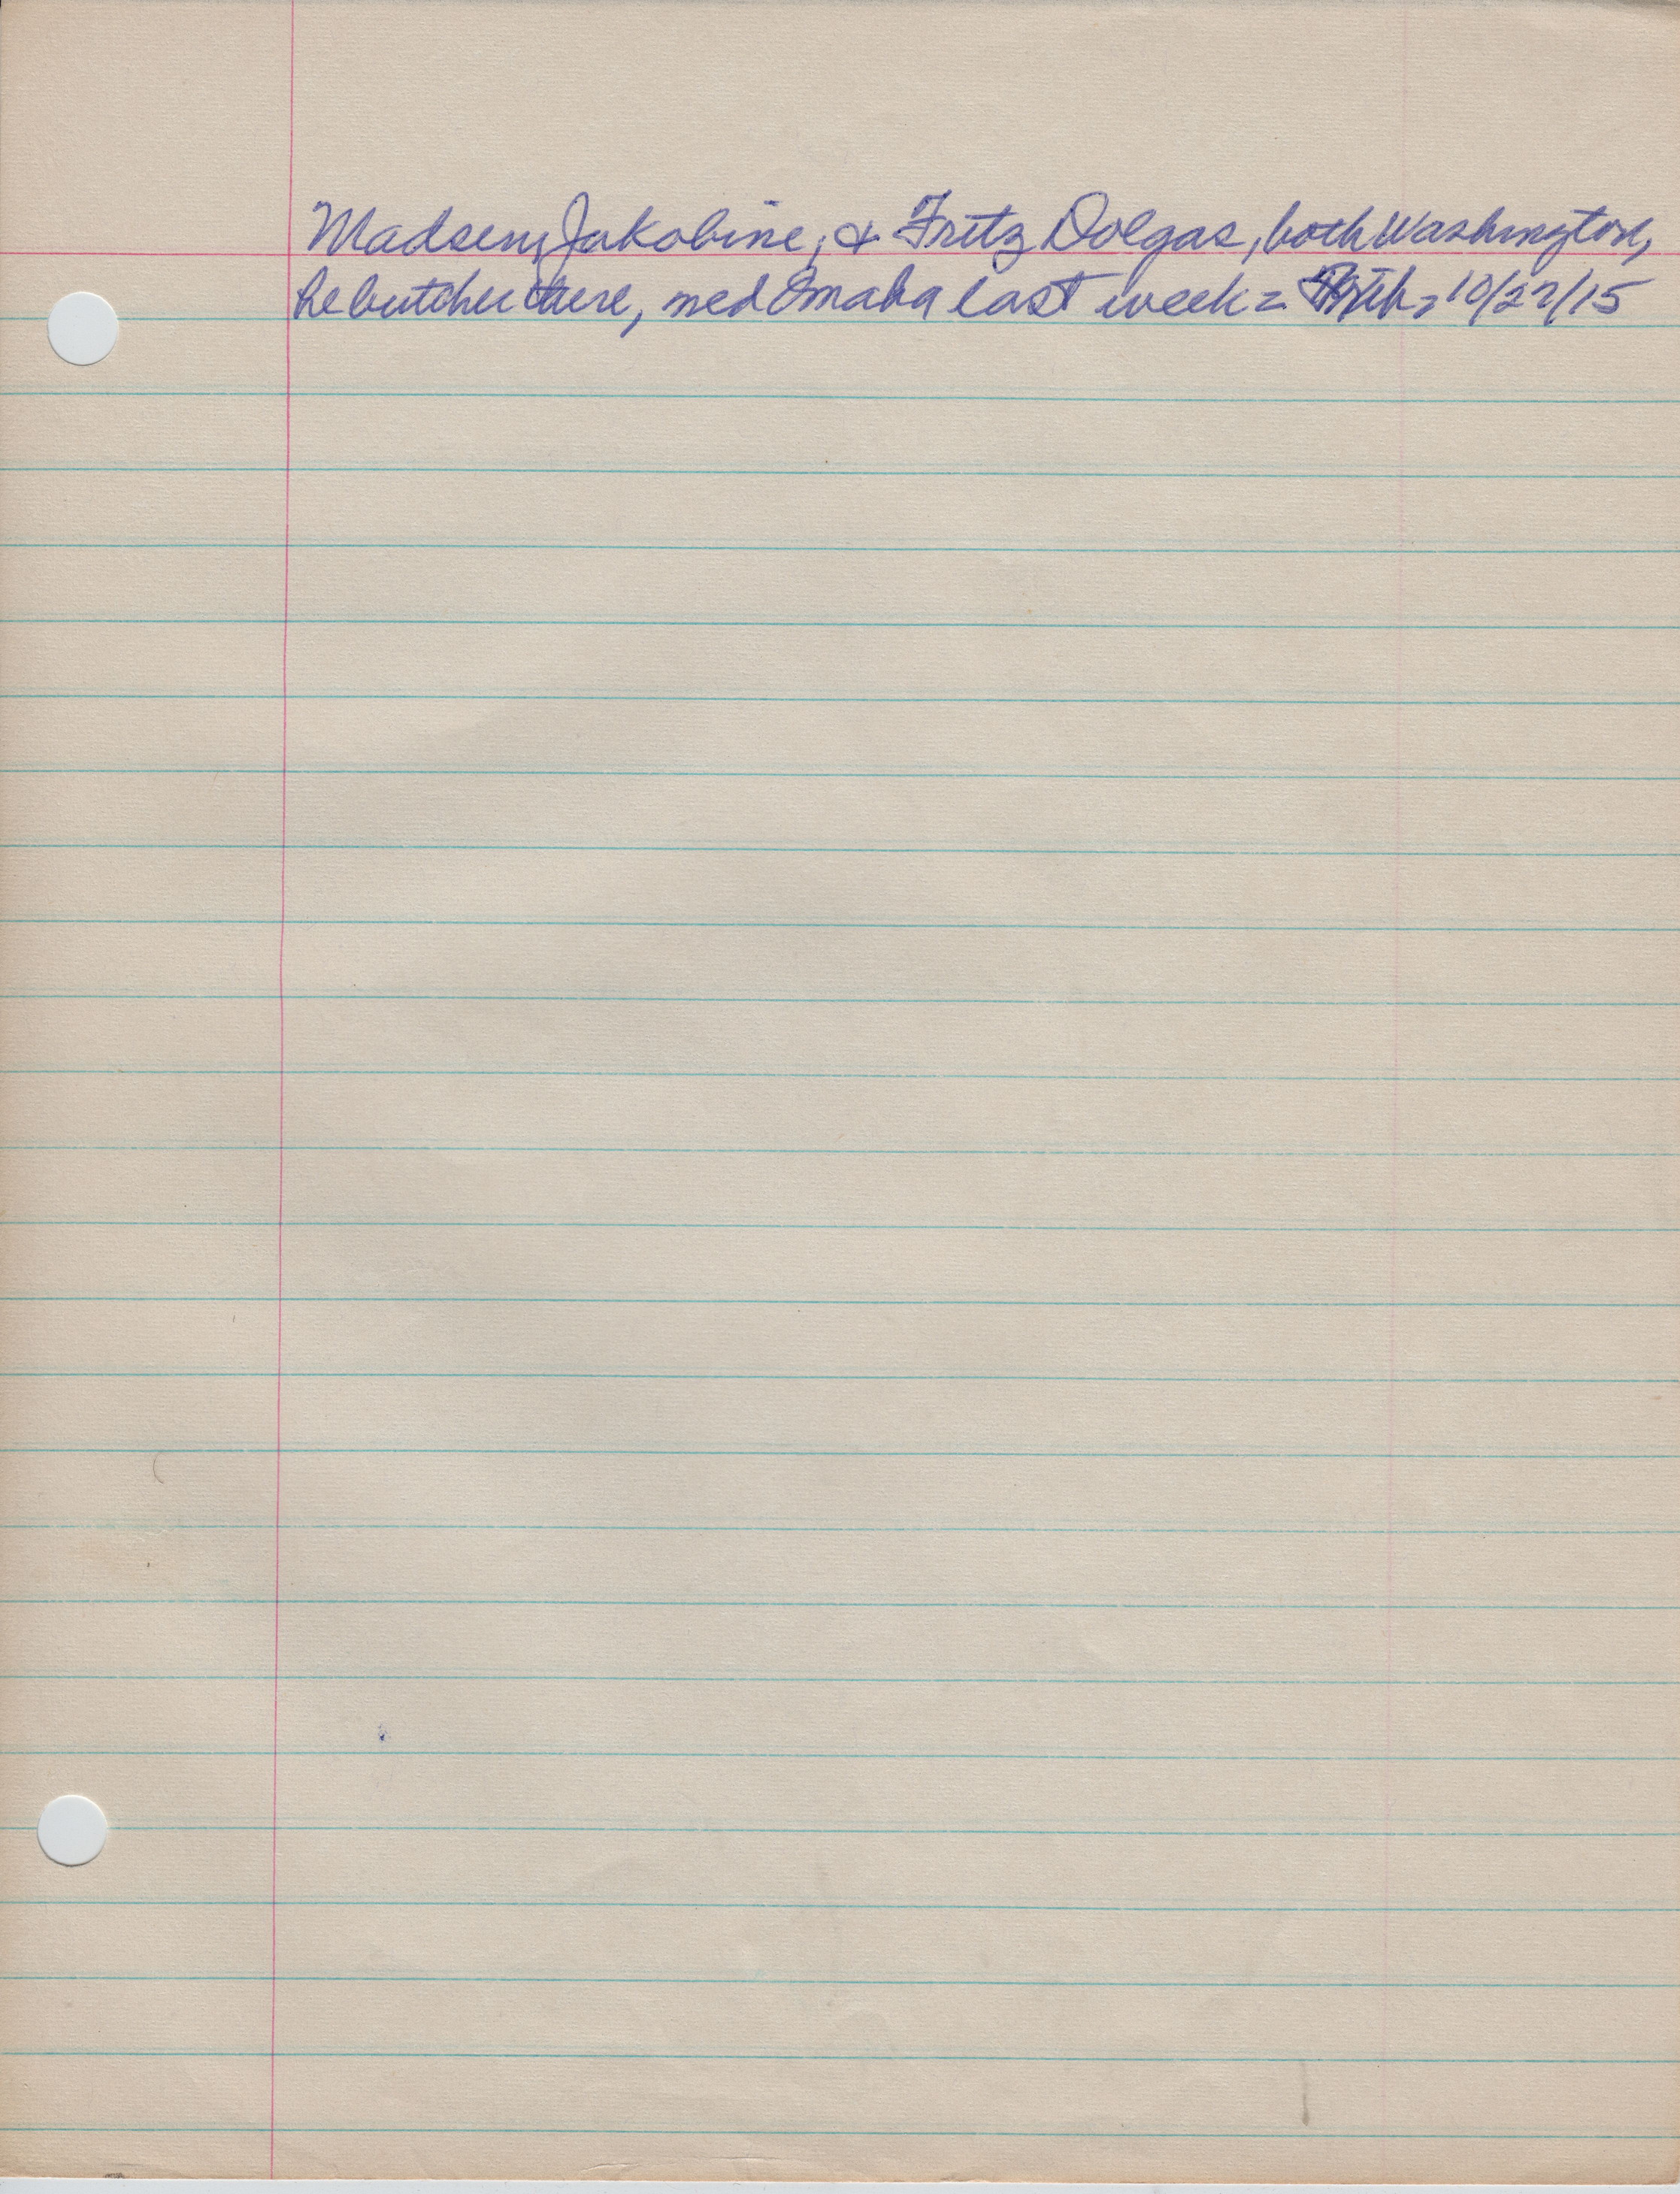 Madsen, Jakobine, & Fritz Dolgas, both Washington,
he butcher there, med Omaha last week = 10/22/15